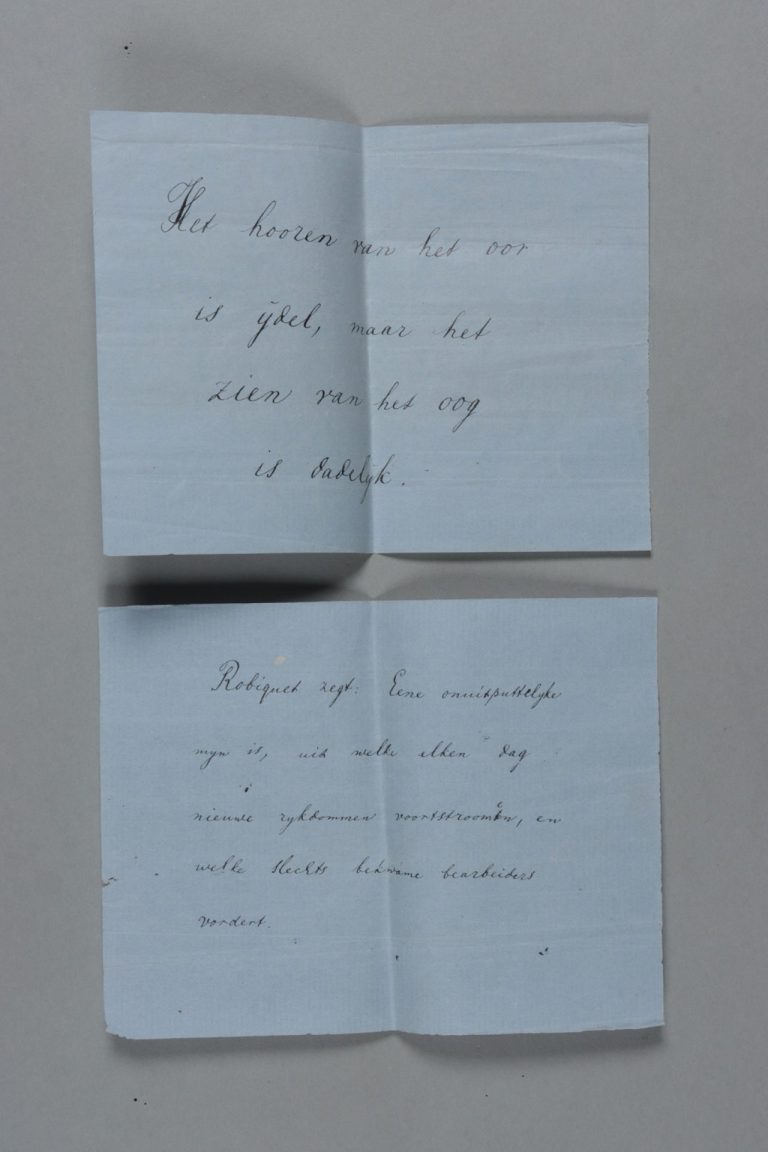 Het hooren van het oor
is ijdel, maar het
zien van het oog
is dadelijk.
Robiquet zegt: Eene onuitputtelyke
myn is, uit welke elken dag
nieuwe rykdommen voortstroomen, en
welke slechts bekwame bearbeiders
vordert.